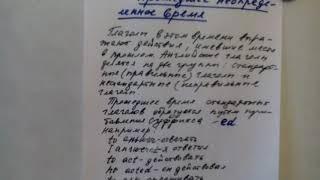 Прошедшее неопреде-
ленное время
Глагол в этом времени выра-
жают действия, имевшие место
в прошлом. Английские глаголы
делятся на две группы: стандарт-
ные (правильные) глаголы и
нестандартные (неправильные
глаголы.
Прошедшее время стандартных
глаголов образуется путем приб-
тавления суффикса -ed
например:
to answer-отвечать
I answered-я ответил
to act-действовать
he acted-он действовал
to ask-спрашивать